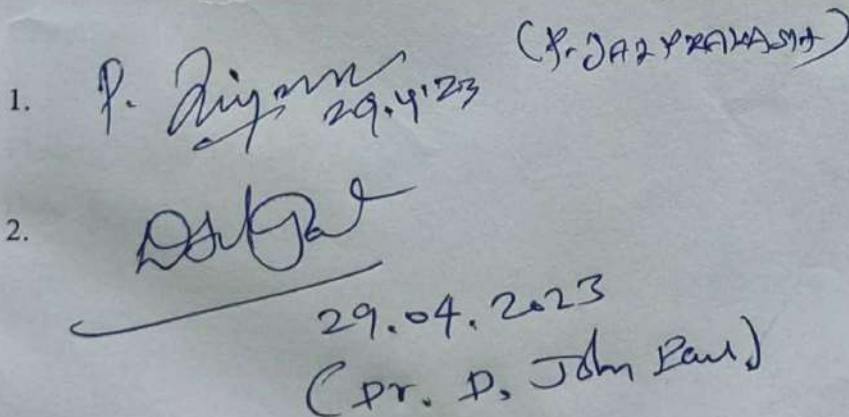 1. P. 29.4'23 (P. JAYPRAKASH)
2.
29.04.2023
(Dr. D. John Paul)